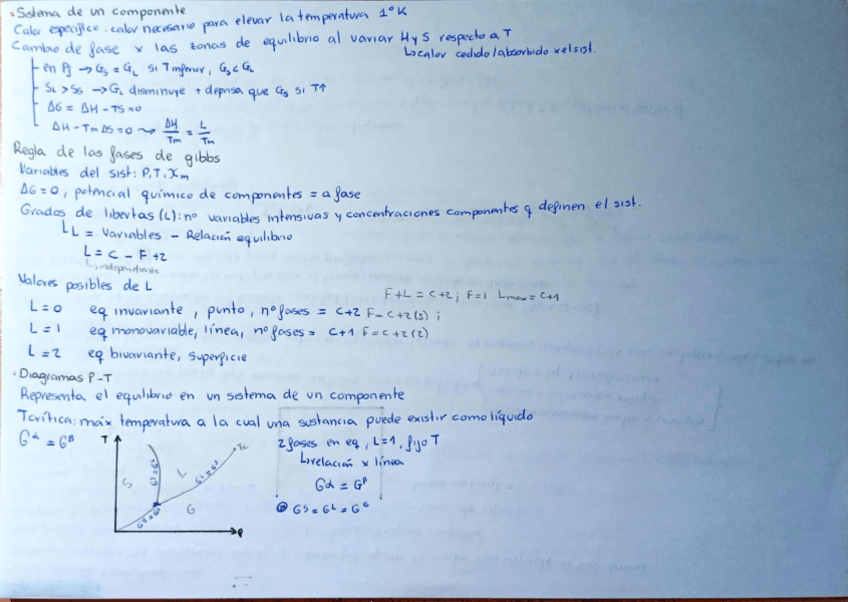 • Sistema de un componente
Calor específico: calor necesario para elevar la temperatura 1°K
Cambio de fase x las zonas de equilibrio al variar H y S respecto a T
↳calor cedido/absorbido x el sist.
en Pf → Gs = GL si T inferior, Gs < GL
SL > Ss → GL disminuye + deprisa que Gs si T↑
ΔG = ΔH - TS = 0
ΔH - Tm ΔS = 0 ⇝ ΔH/Tm = L/Tm
Regla de las fases de gibbs
Variables del sist: P, T, Xm
ΔG = 0, potencial químico de componentes = a fase
Grados de libertas (L): nº variables intensivas y concentraciones componentes q definen el sist.
↳L = Variables - Relación equilibrio
L = C - F + 2
↳independiente
Valores posibles de L
F + L = C + 2 ; F = 1 Lmax = C + 1
L = 0 eq invariante, punto, nº fases = C + 2 F = C + 2 (3) ;
L = 1 eq monovariable, línea, nº fases = C + 1 F = C + 2 (2)
L = 2 eq bivariante, superficie
• Diagramas P-T
Representa el equilibrio en un sistema de un componente
Tcrítica: máx temperatura a la cual una sustancia puede existir como líquido
Gα = Gβ
T
Tc
S
L
G
P
2 fases en eq, L = 1, fijo T
↳relación x línea
Gα = Gβ
Gs = GL = GG